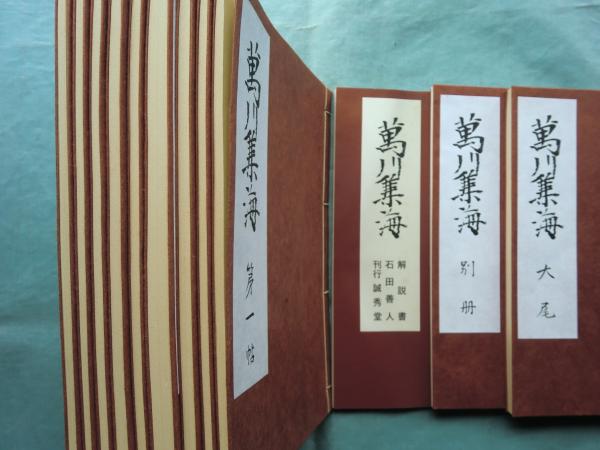 萬川集海 第一帖
萬川集海
解説書
石田善人
刊行誠秀堂
萬川集海 別册
萬川集海 大尾